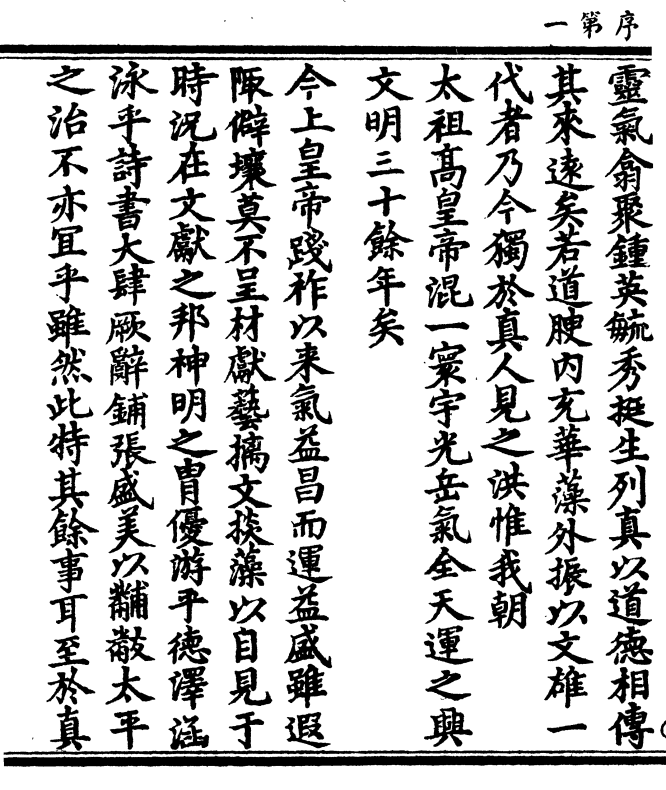 序第一
靈氣翕聚鍾英毓秀挺生列真以道德相傳
其來遠矣若道腴內充華藻外振以文雄一
代者乃今獨於真人見之洪惟我朝
太祖高皇帝混一寰宇光岳氣全天運之興
文明三十餘年矣
今上皇帝踐祚以来氣益昌而運益盛雖遐
陬僻壤莫不呈材獻藝摛文掞藻以自見于
時況在文獻之邦神明之胄優游乎德澤涵
泳乎詩書大肆厥辭鋪張盛美以黼黻太平
之治不亦冝乎雖然此特其餘事耳至於真